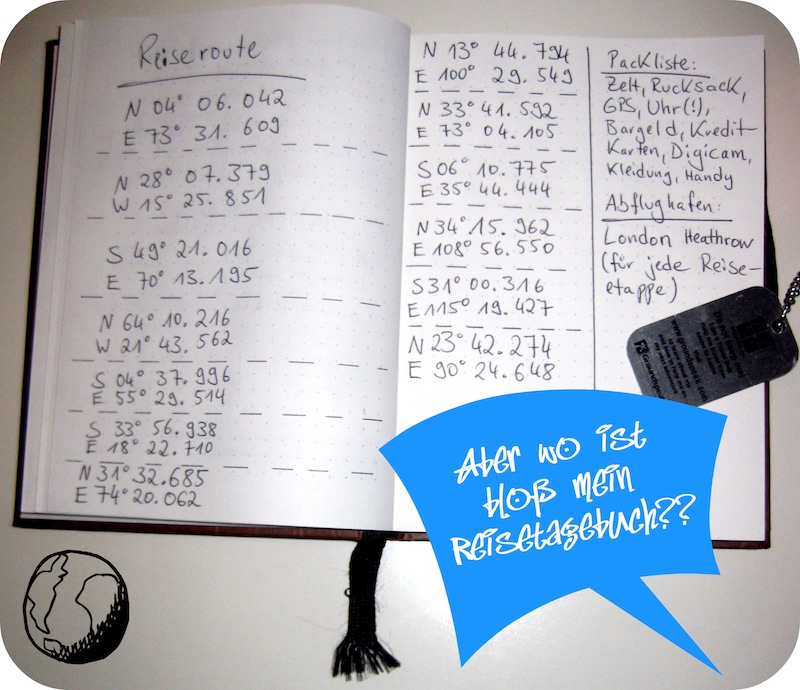 Reiseroute
N 04° 06.042
E 73° 31. 609
N 28° 07.379
W 15° 25. 851
S 49° 21.016
E 70° 13.195
N 64° 10.216
W 21° 43. 562
S 04° 37.996
E 55° 29.514
S 33° 56.938
E 18° 22.710
N 31° 32.685
E 74° 20.062
N 13° 44.794
E 100° 29.549
N 33° 41.592
E 73° 04.105
S 06° 10.775
E 35° 44.444
N 34° 15.962
E 108° 56.550
S 31° 00.316
E 115° 19.427
N 23° 42.274
E 90° 24.648
Packliste:
Zelt, Rucksack,
GPS, Uhr(!),
Bargeld, Kredit-
Karten, Digicam,
Kleidung, Handy
Abflughafen:
London Heathrow
(für jede Reise-
etappe)
Aber wo ist
bloß mein
Reisetagebuch??